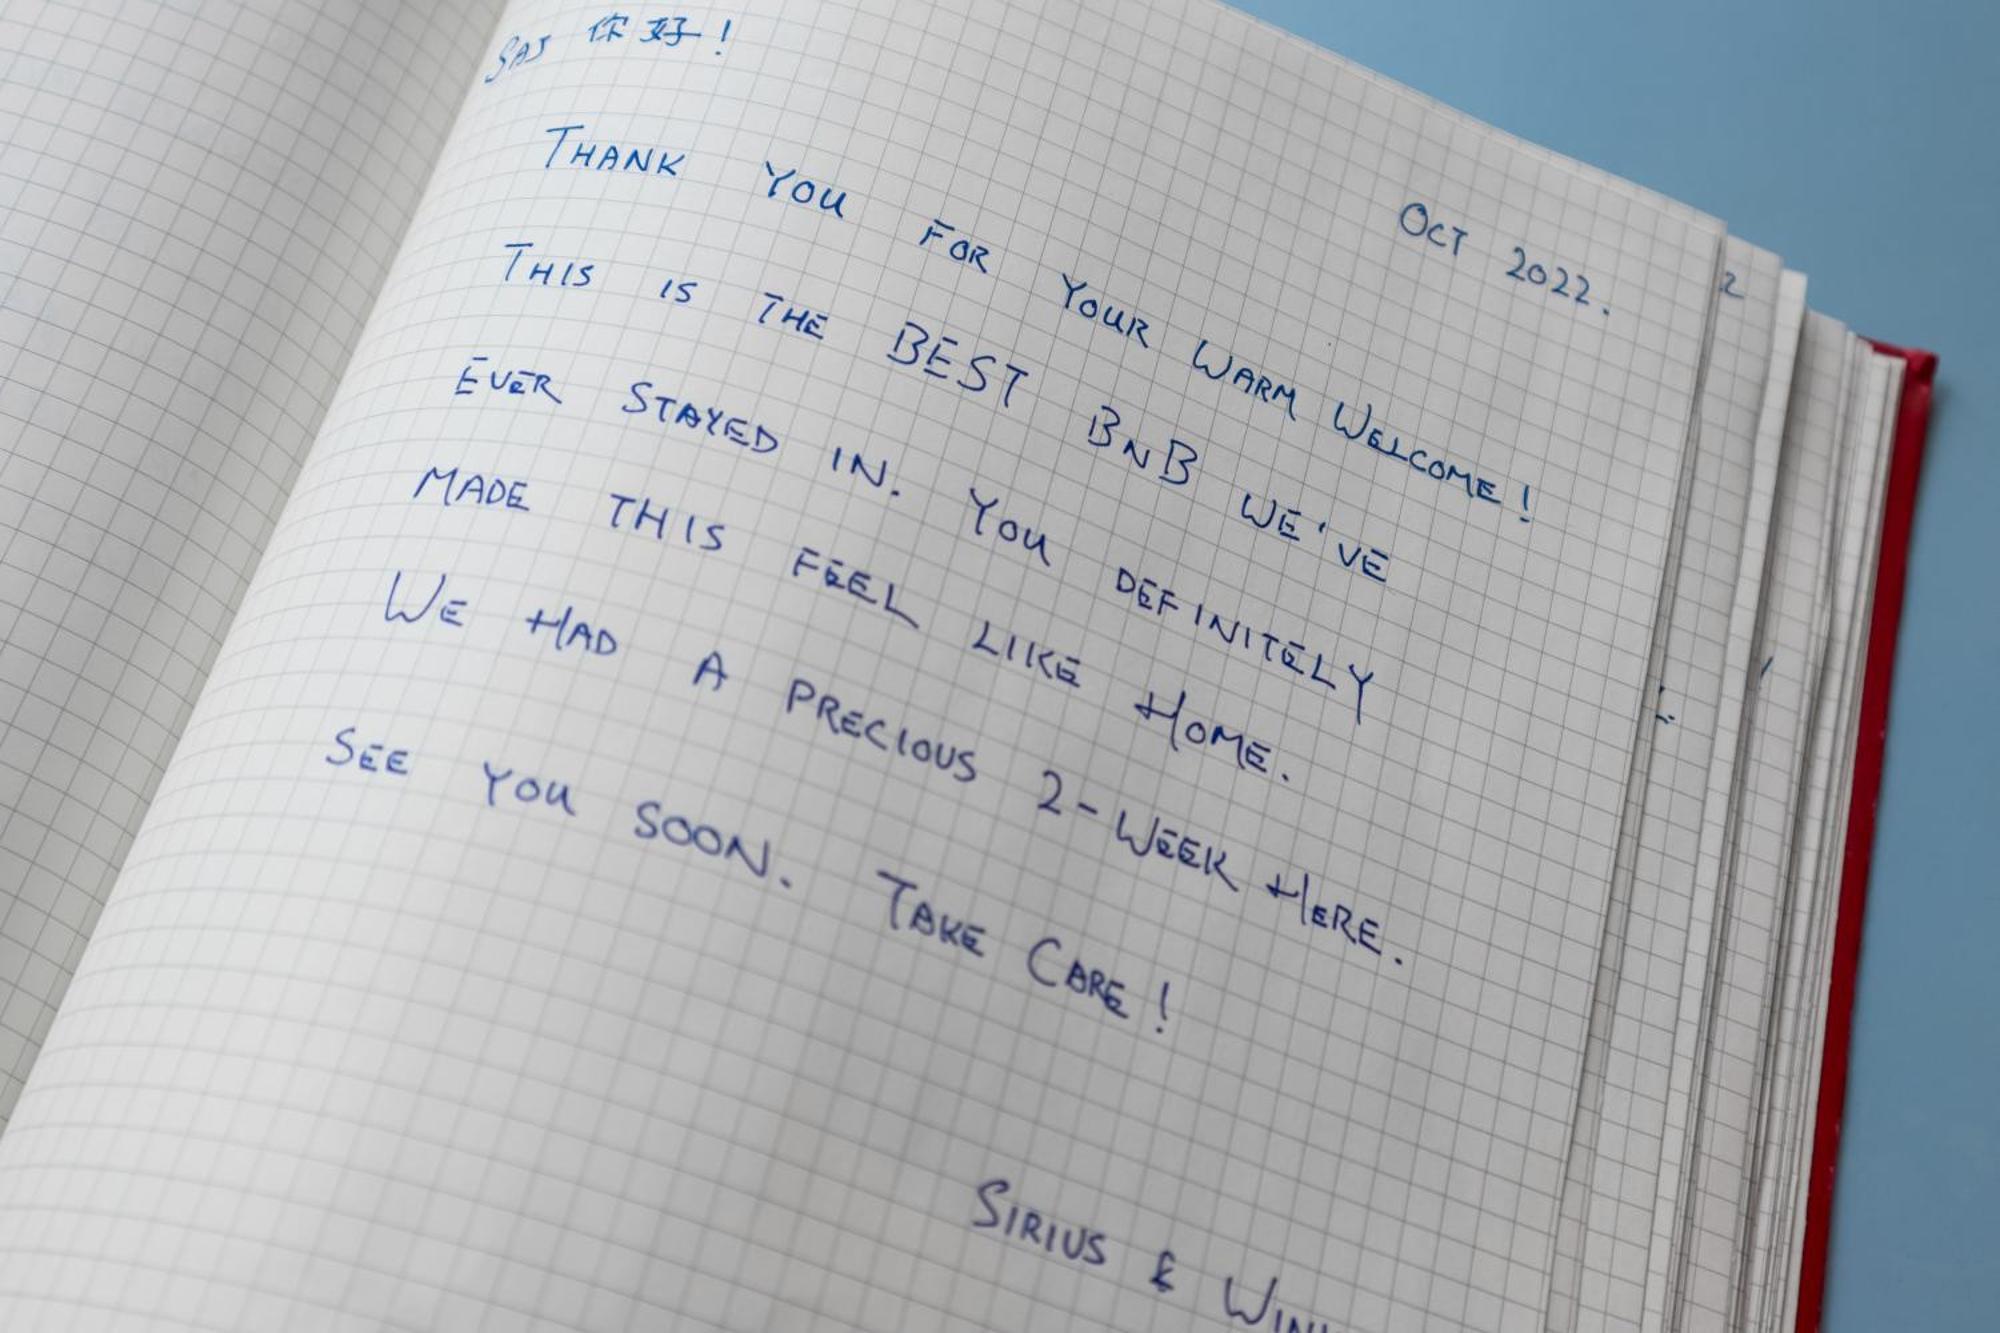 SAJ 你好!
OCT 2022.
THANK YOU FOR YOUR WARM WELCOME!
THIS IS THE BEST BNB WE'VE
EVER STAYED IN. YOU DEFINITELY
MADE THIS FEEL LIKE HOME.
WE HAD A PRECIOUS 2-WEEK HERE.
SEE YOU SOON. TAKE CARE!
SIRIUS &